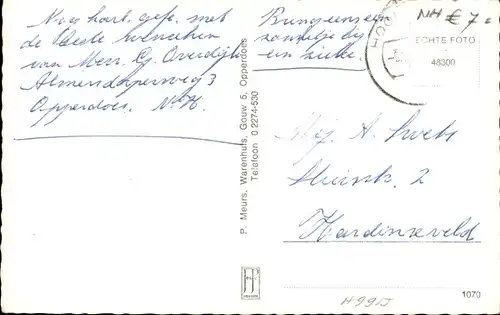 Nog hart. gefe. met
de beste wenschen
van Mevr. Gj. Overdijk
Almersdorperweg 3
Opperdoes. N.H.
Breng eens een
zonnetje bij
een zieke.
NH € 7
ECHTE FOTO
48300
P. Meurs, Warenhuis, Gouw 5, Opperdoes
Telefoon 0 2274-530
Mej. A. Swets
2
Hardinxveld
1070